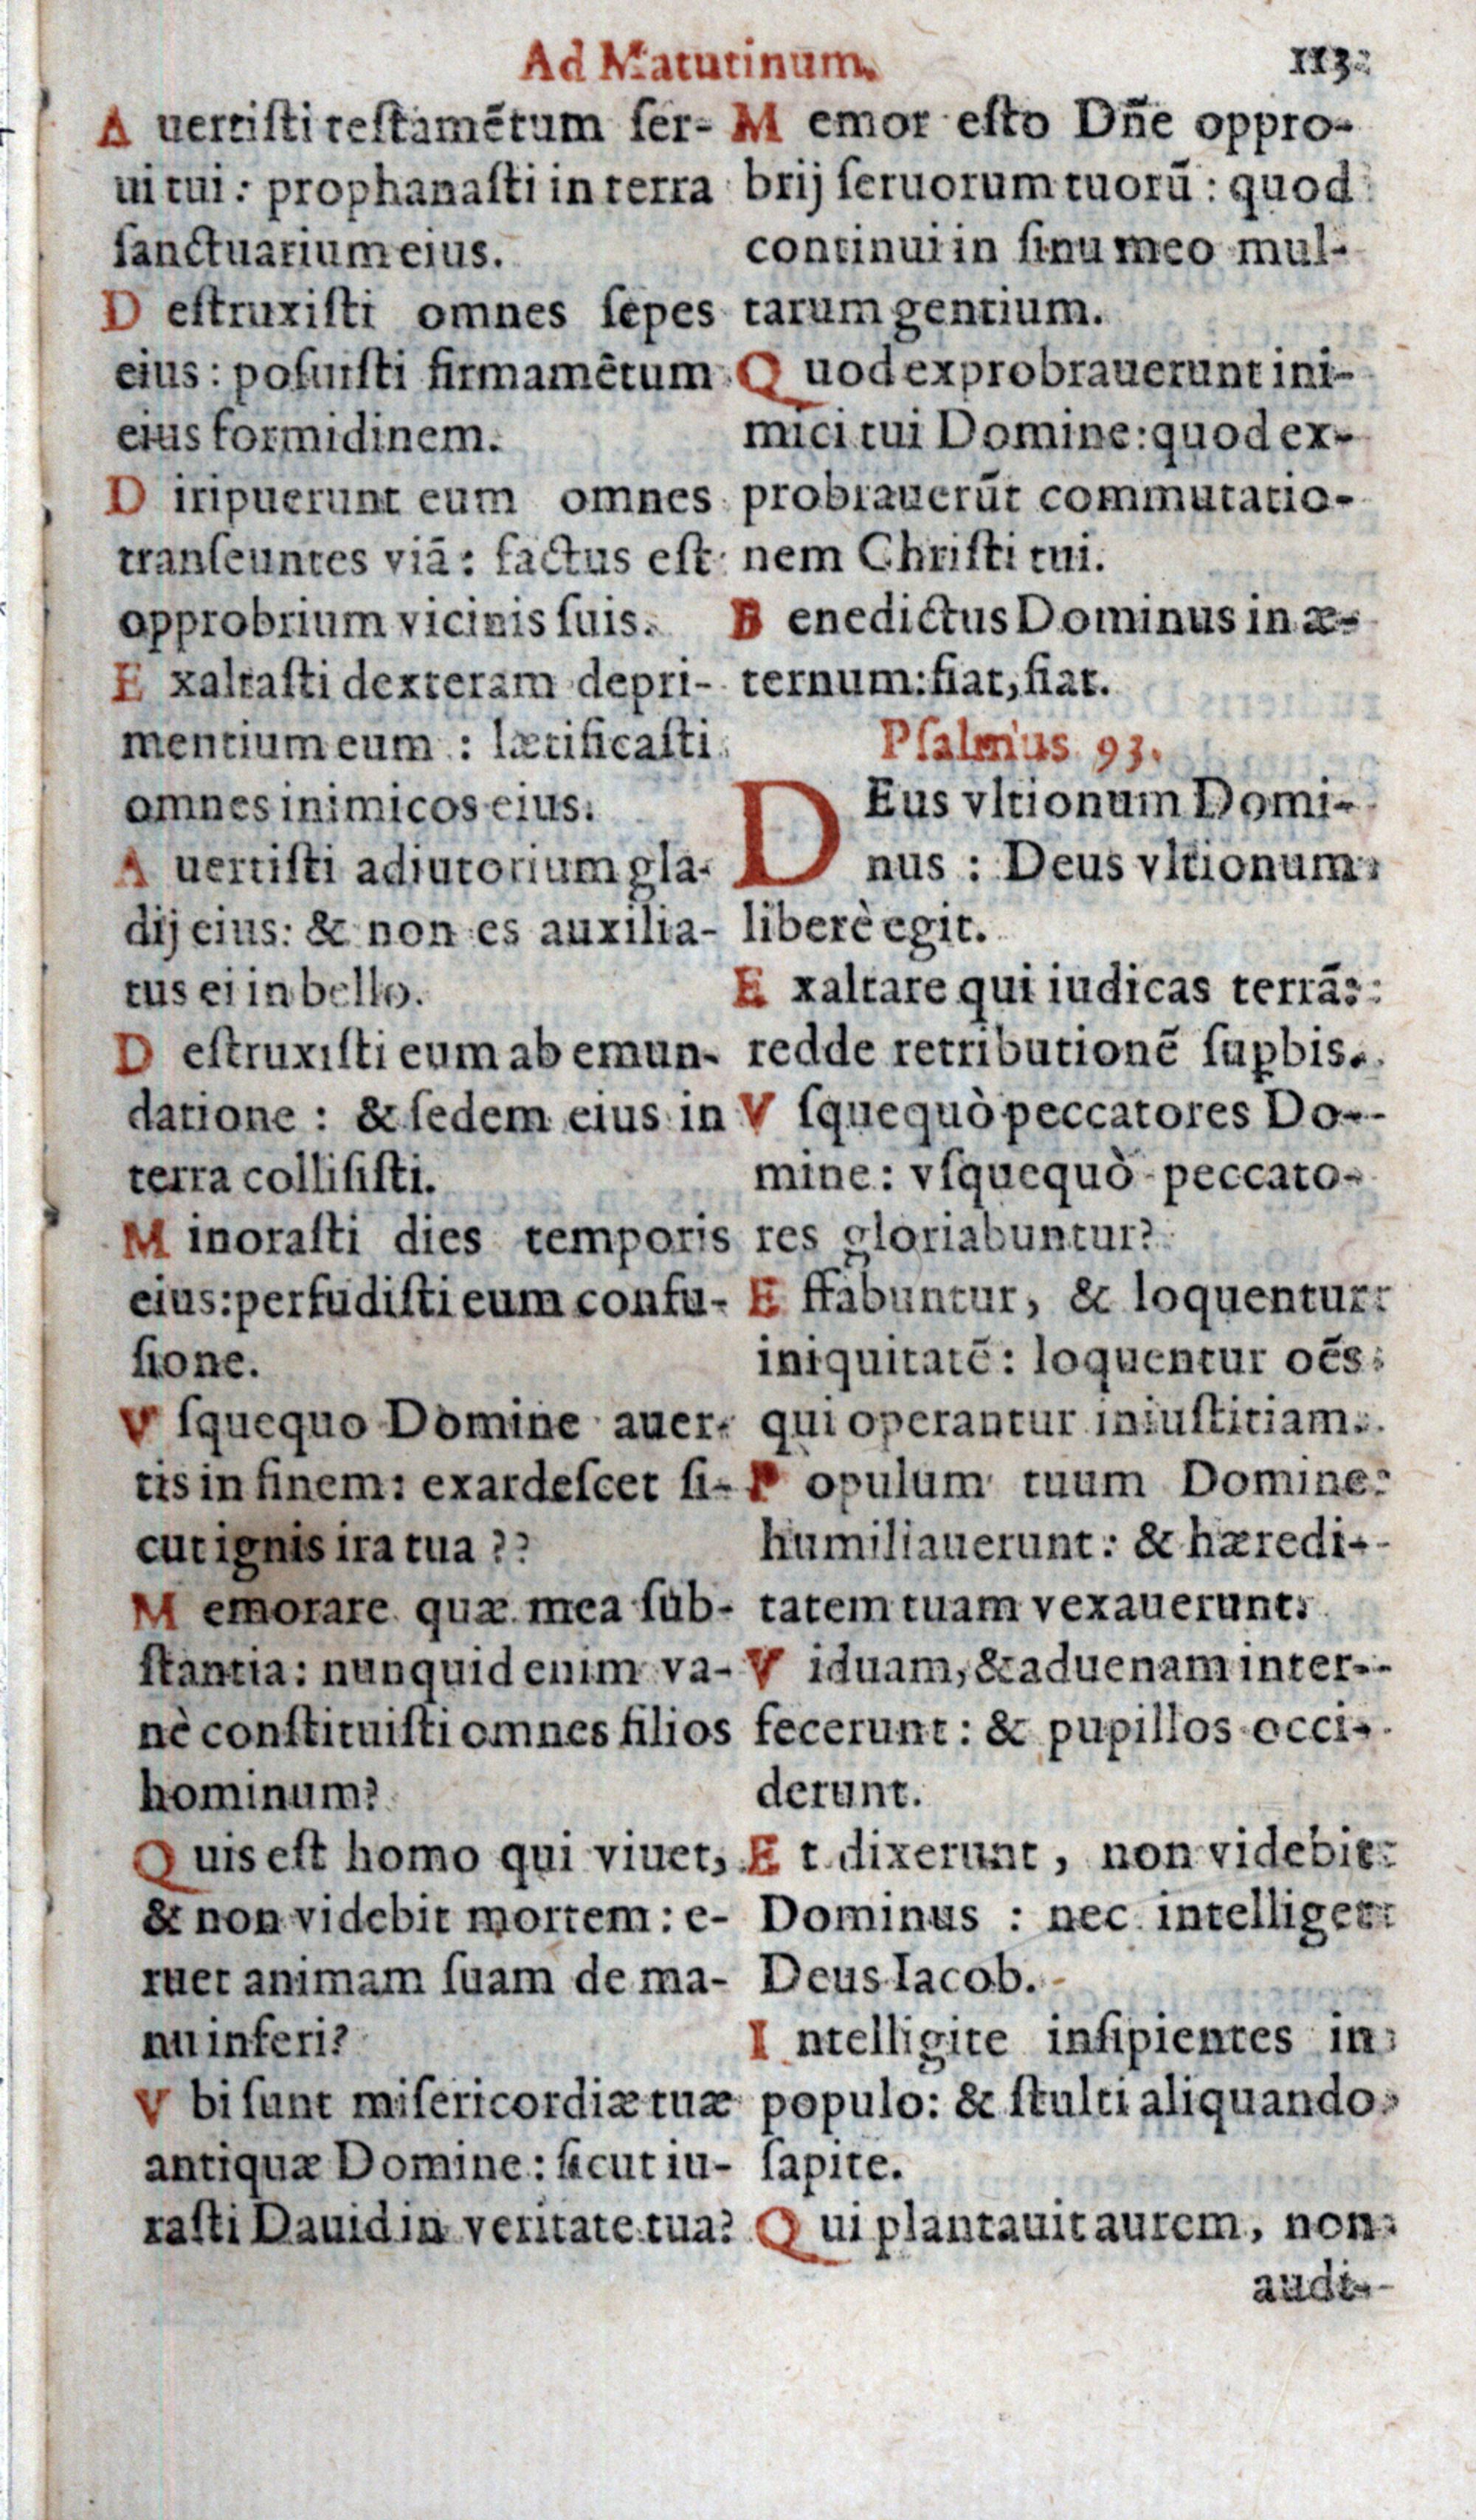 Ad Matutinum.
113.
A uertiſti teſtamẽtum ſer-
ui tui: prophanaſti in terra
ſanctuarium eius.
D eſtruxiſti omnes ſepes
eius: poſuiſti firmamẽtum
eius formidinem.
D iripuerunt eum omnes
tranſeuntes viã: factus eſt
opprobrium vicinis ſuis.
E xaltaſti dexteram depri-
mentium eum : lætificaſti
omnes inimicos eius.
A uertiſti adiutorium gla-
dij eius: & non es auxilia-
tus ei in bello.
D eſtruxiſti eum ab emun-
datione : & ſedem eius in
terra colliſiſti.
M inoraſti dies temporis
eius: perfudiſti eum confu-
ſione.
V ſquequo Domine auer-
tis in finem: exardeſcet ſi-
cut ignis ira tua ??
M emorare quæ mea ſub-
ſtantia: nunquid enim va-
nè conſtituiſti omnes filios
hominum?
Q uis eſt homo qui viuet,
& non videbit mortem: e-
ruet animam ſuam de ma-
nu inferi?
V bi ſunt miſericordiæ tuæ
antiquæ Domine: ſicut iu-
raſti Dauid in veritate tua?
M emor eſto Dñe oppro-
brij ſeruorum tuorũ: quod
continui in ſinu meo mul-
tarum gentium.
Q uod exprobrauerunt ini-
mici tui Domine: quod ex-
probrauerũt commutatio-
nem Chriſti tui.
B enedictus Dominus in æ-
ternum: fiat, fiat.
Pſalmus 93.
D Eus vltionum Domi-
nus : Deus vltionum
liberè egit.
E xaltare qui iudicas terrã:
redde retributionẽ ſuꝑbis.
V ſquequò peccatores Do-
mine: vſquequò peccato-
res gloriabuntur?
E ffabuntur, & loquentur
iniquitatẽ: loquentur oẽs
qui operantur iniuſtitiam.
P opulum tuum Domine
humiliauerunt: & hæredi-
tatem tuam vexauerunt.
V iduam, & aduenam inter-
fecerunt: & pupillos occi-
derunt.
E t dixerunt, non videbit
Dominus : nec intelliget
Deus Iacob.
I ntelligite inſipientes in
populo: & ſtulti aliquando
ſapite.
Q ui plantauit aurem, non
audi-